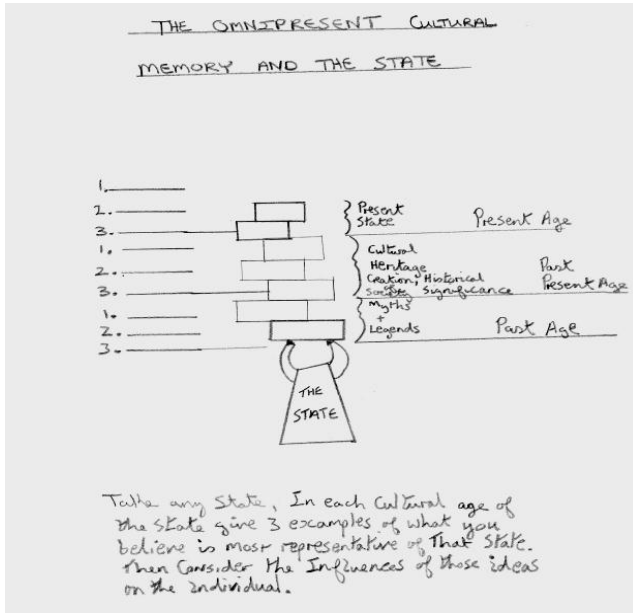 THE OMNIPRESENT CULTURAL
MEMORY AND THE STATE
1.
2.
3.
1.
2.
3.
1.
2.
3.
Present
State
Present Age
Cultural
Heritage
Past
Creation, Historical
of
Society Significance
Present Age
Myths
+
Legends
Past Age
THE
STATE
Take any State, In each Cultural age of
the State give 3 examples of what you
believe is most representative of That State.
Then Consider the Influences of those ideas
on the individual.